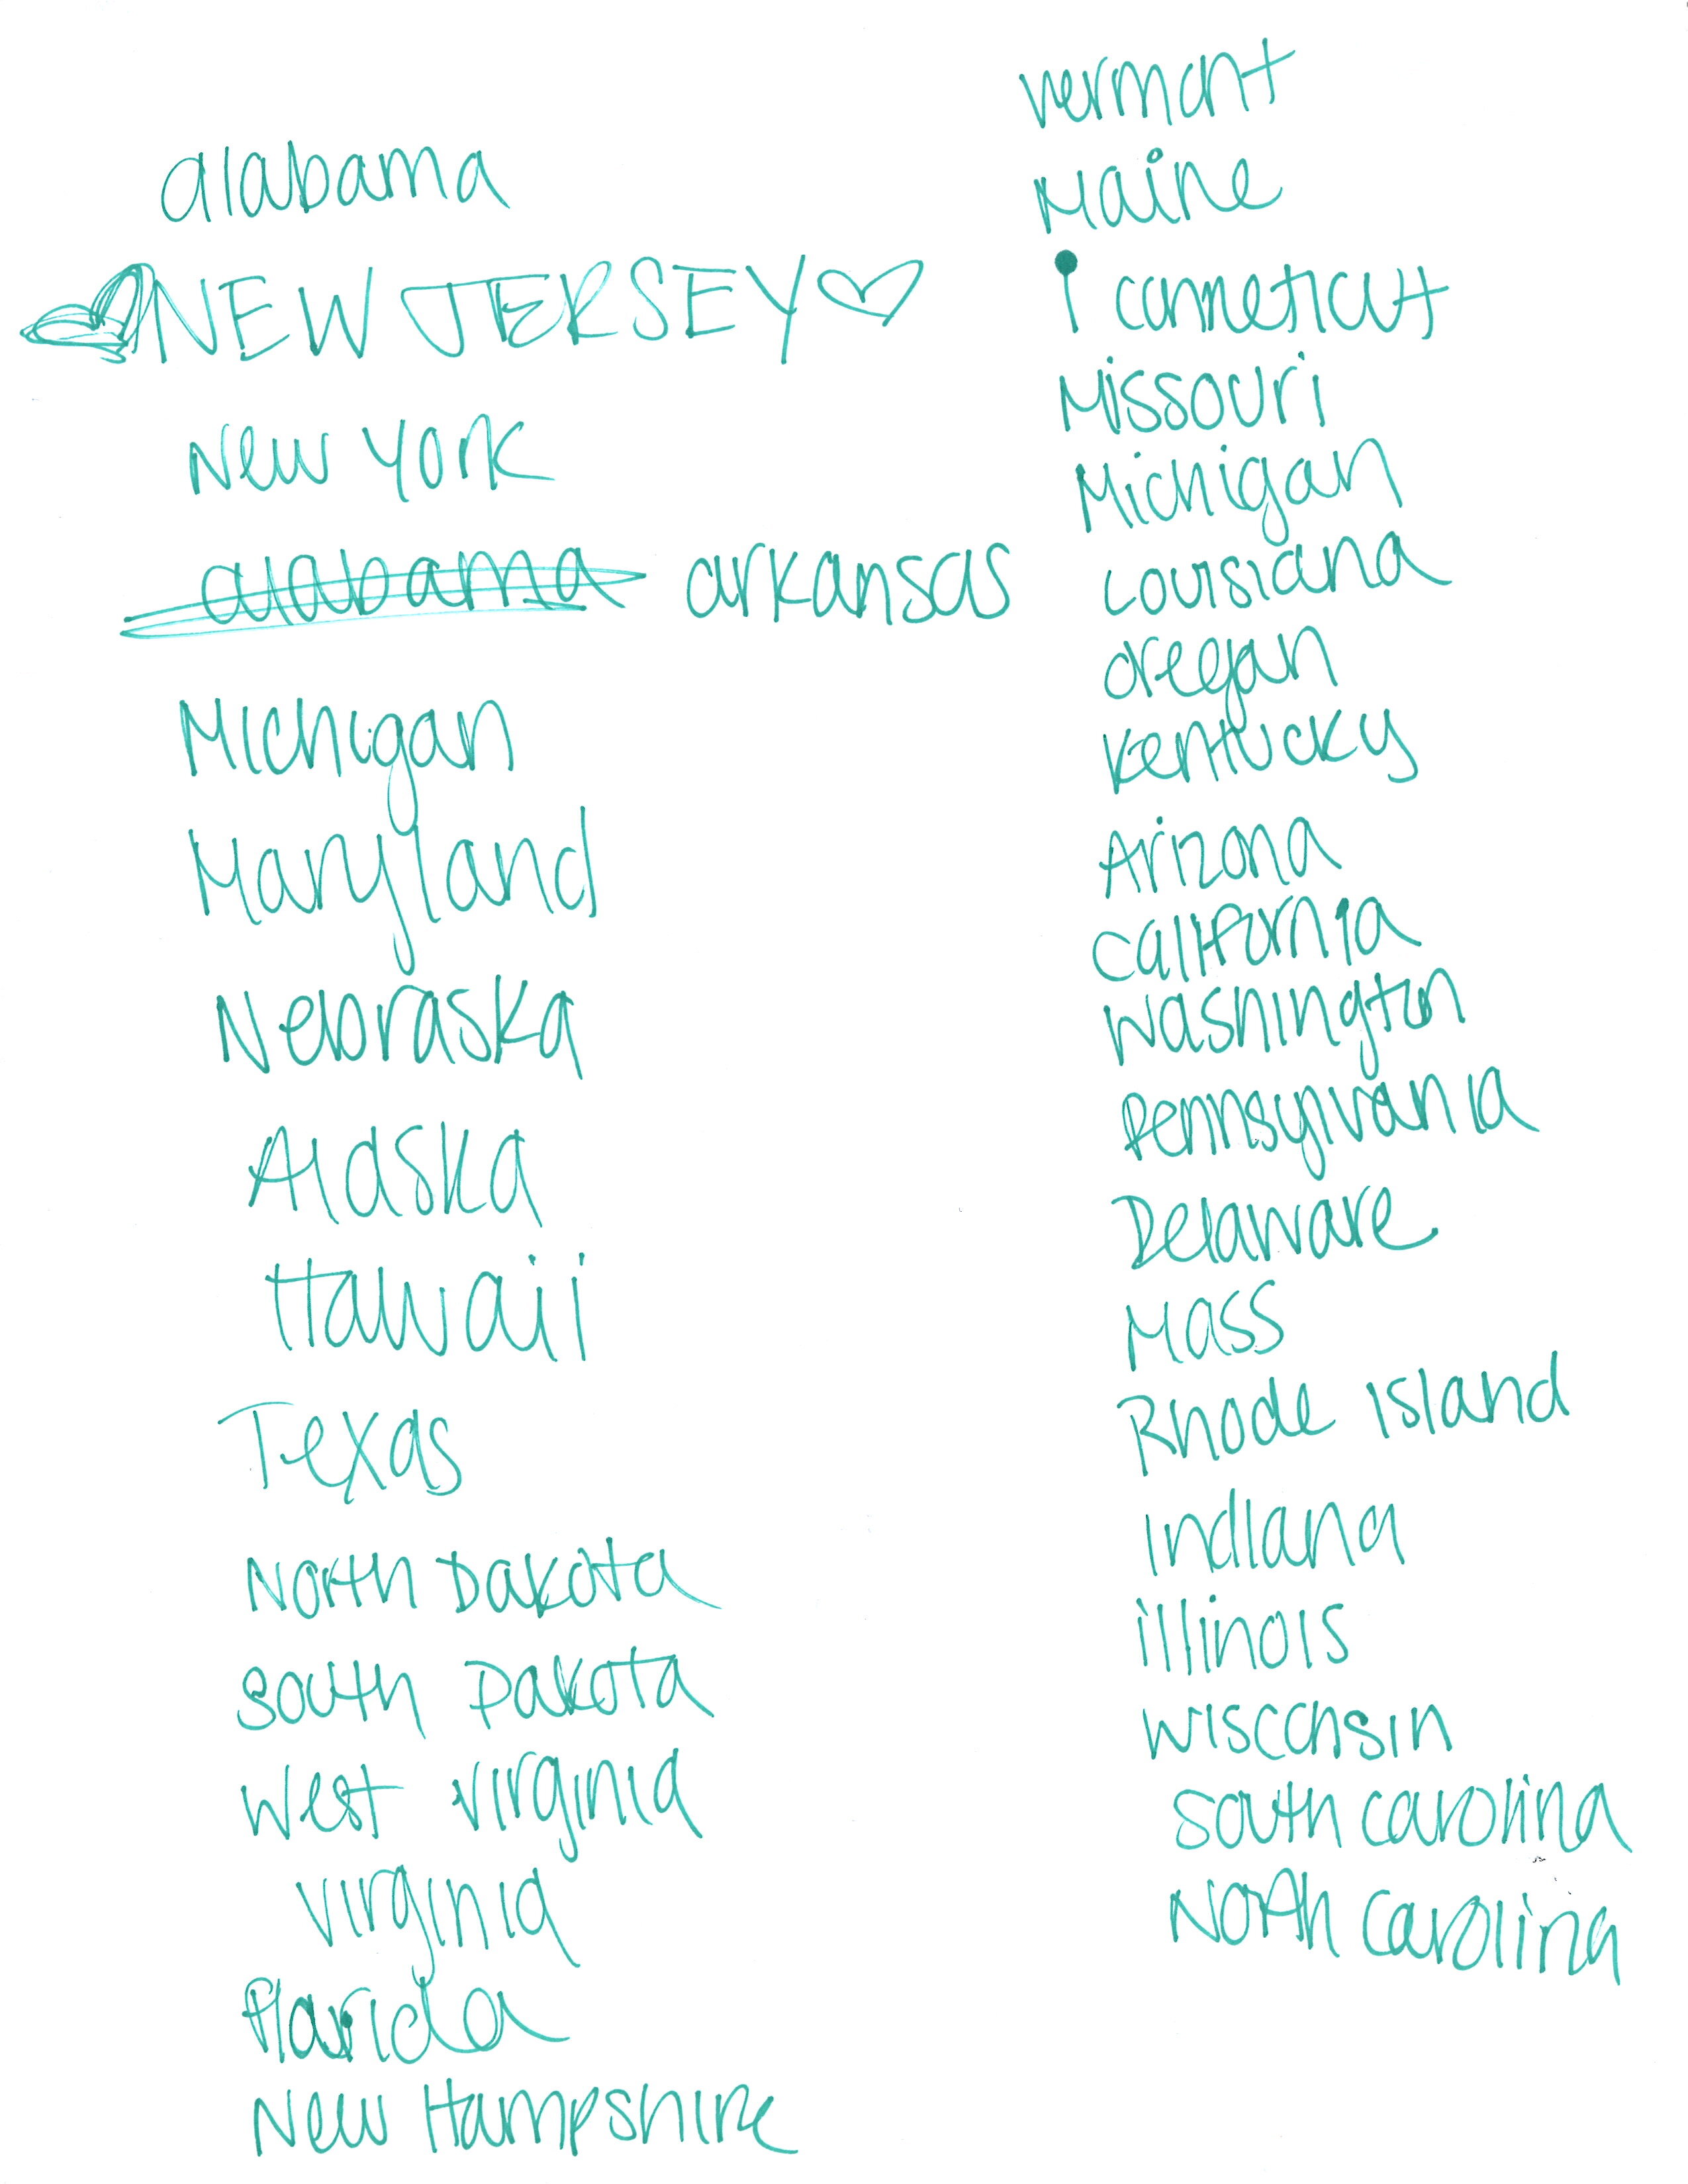 alabama
NEW JERSEY
New York
alabama arkansas
Michigan
Maryland
Nebraska
Alaska
Hawaii
Texas
North Dakota
South Dakota
West Virginia
Virginia
Florida
New Hampshire
Vermont
Maine
i conneticutt
Missouri
Michigan
Louisiana
oregan
Kentucky
Arizona
California
Washington
Pennsylvania
Delaware
Mass
Rhode Island
Indiana
illinois
wisconsin
South carolina
North Carolina